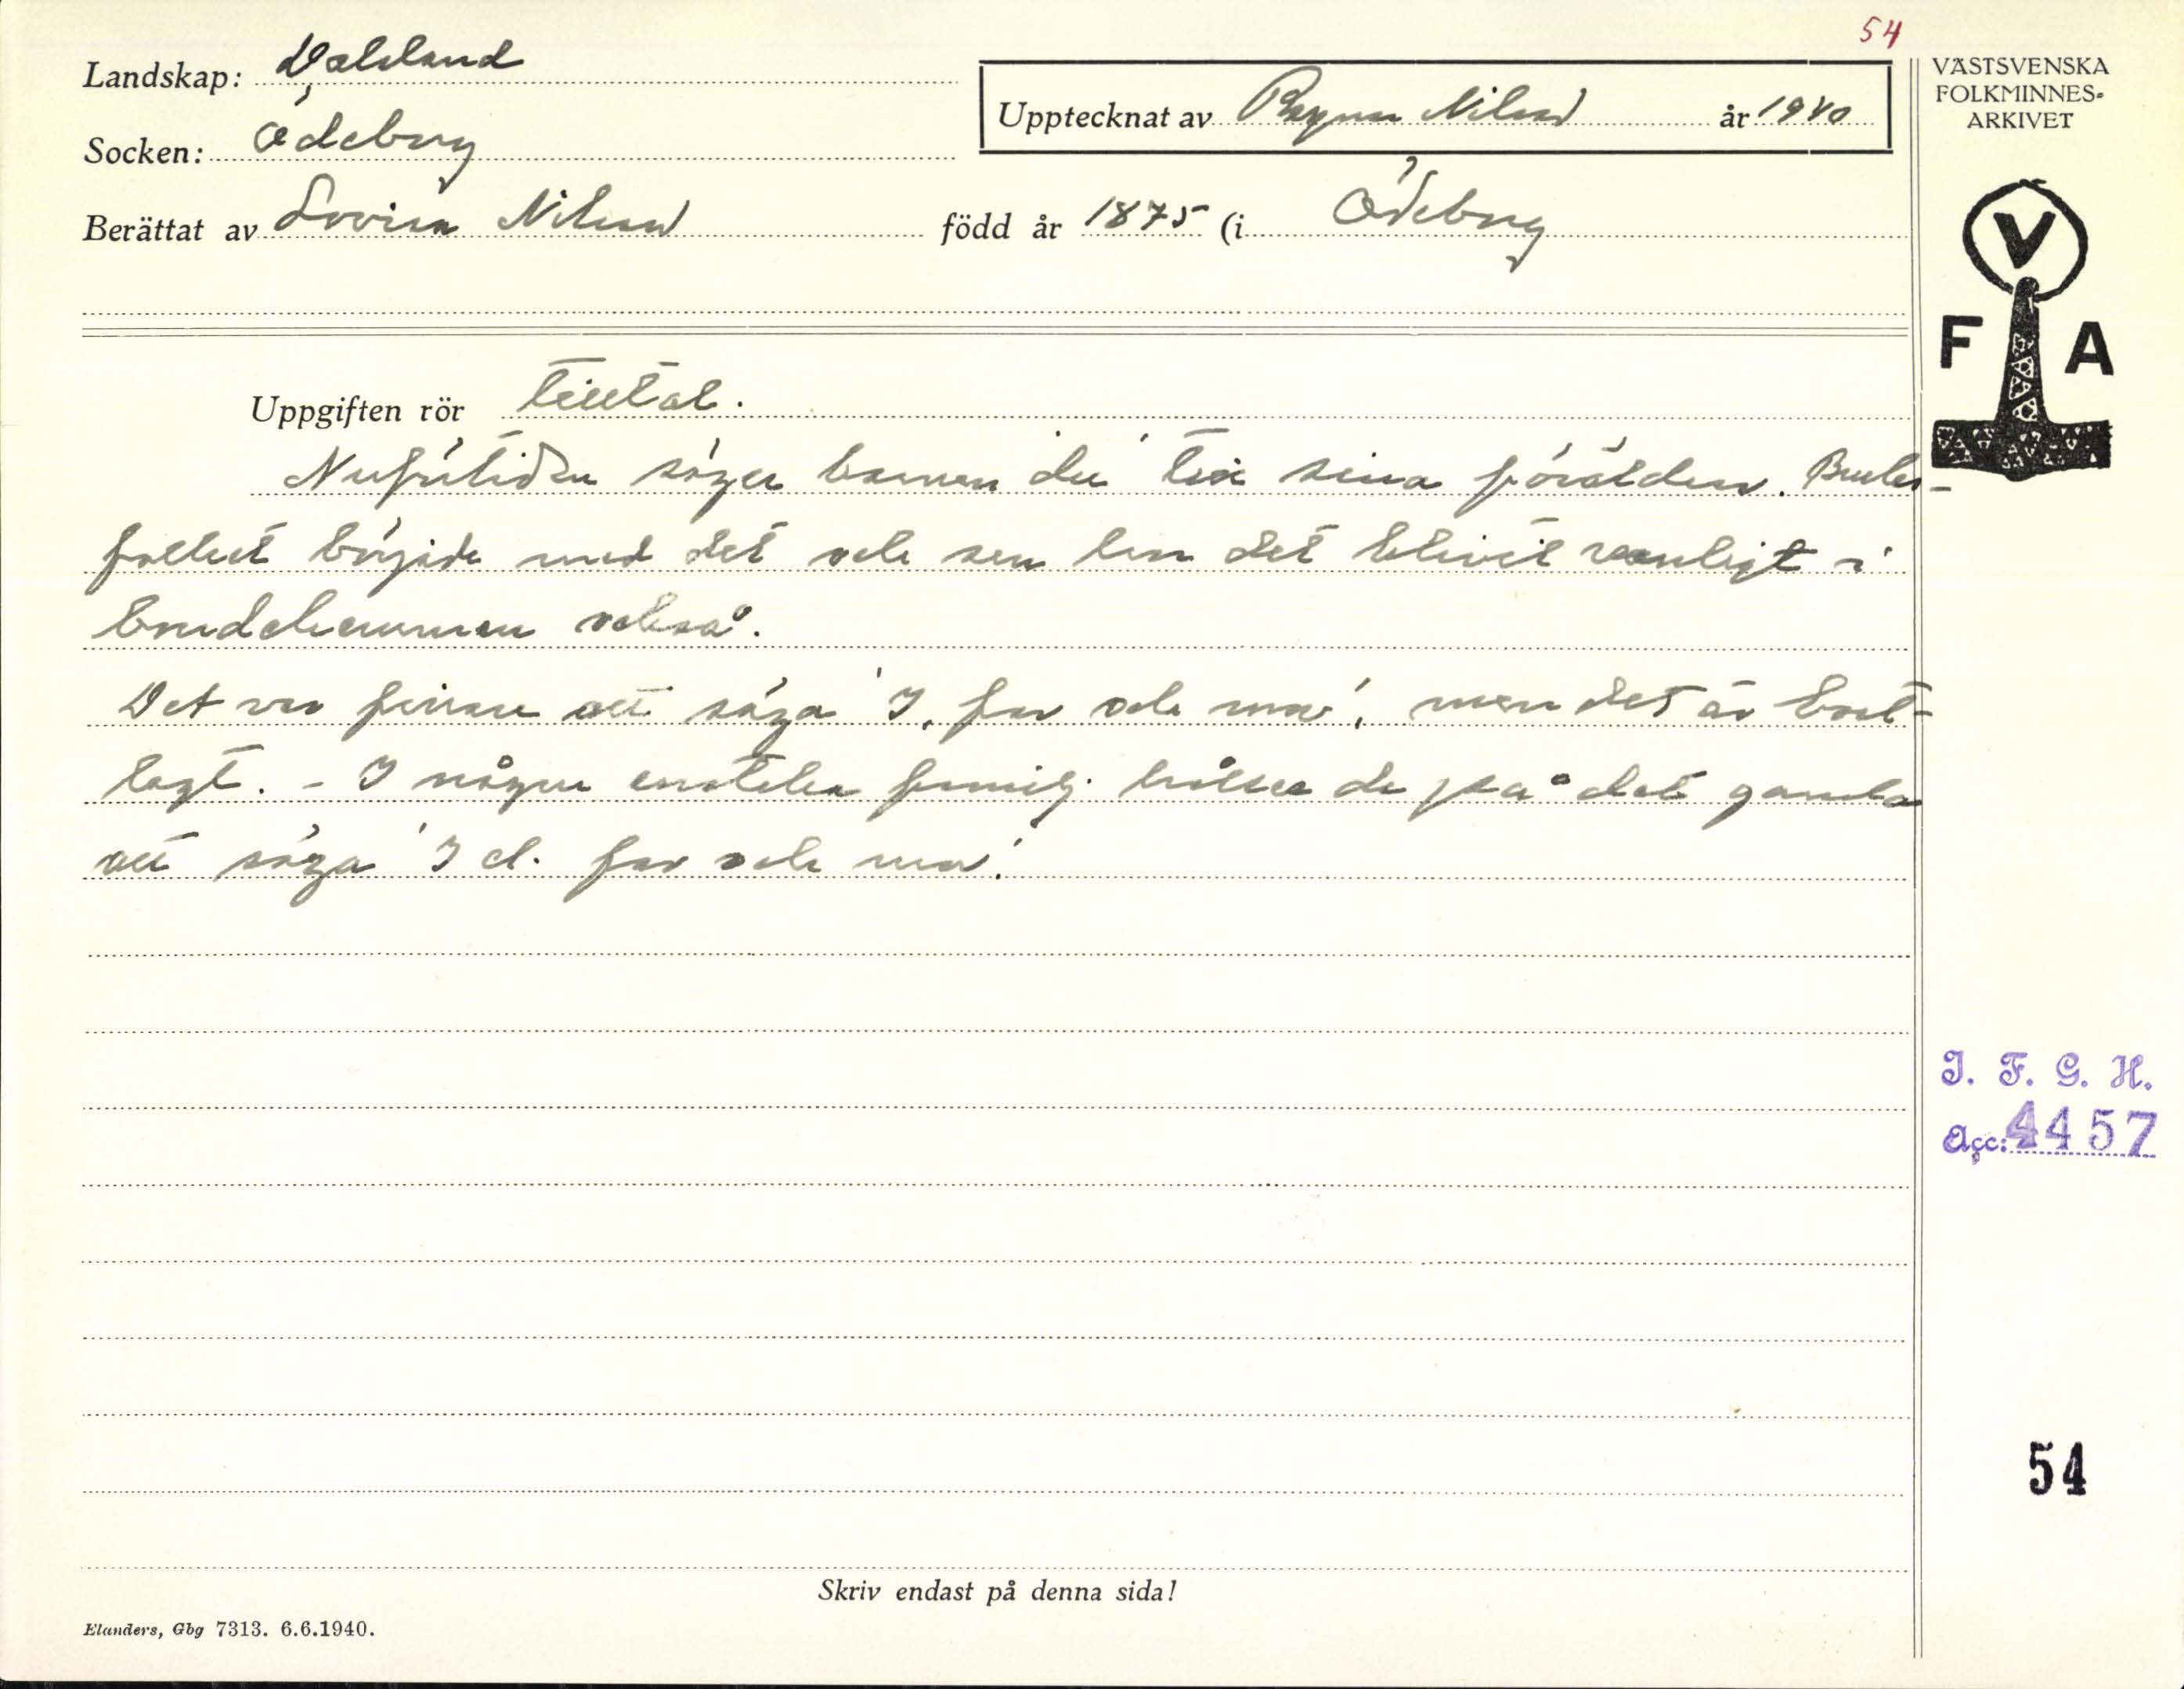 54
Landskap: Dalsland
VÄSTSVENSKA
FOLKMINNES-
ARKIVET
Upptecknat av Ragnar Nilsson år 1940
Socken: Ödeborg
Berättat av Lovisa Nilsson född år 1875 (i Ödeborg
V
F A
Uppgiften rör Tilltal.
Nuförtiden säger barnen du till sina föräldrar. Bruks-
folket började med det och sen har det blivit vanligt i
bondehemmen också.
Det var finare att säga 'I, far och mor', men det är bort-
lagt. - I någon enstaka familj håller de på det gamla
att säga 'I el. far och mor'.
I. F. G. H.
Acc: 4457
54
Skriv endast på denna sida!
Elanders, Gbg 7313. 6.6.1940.